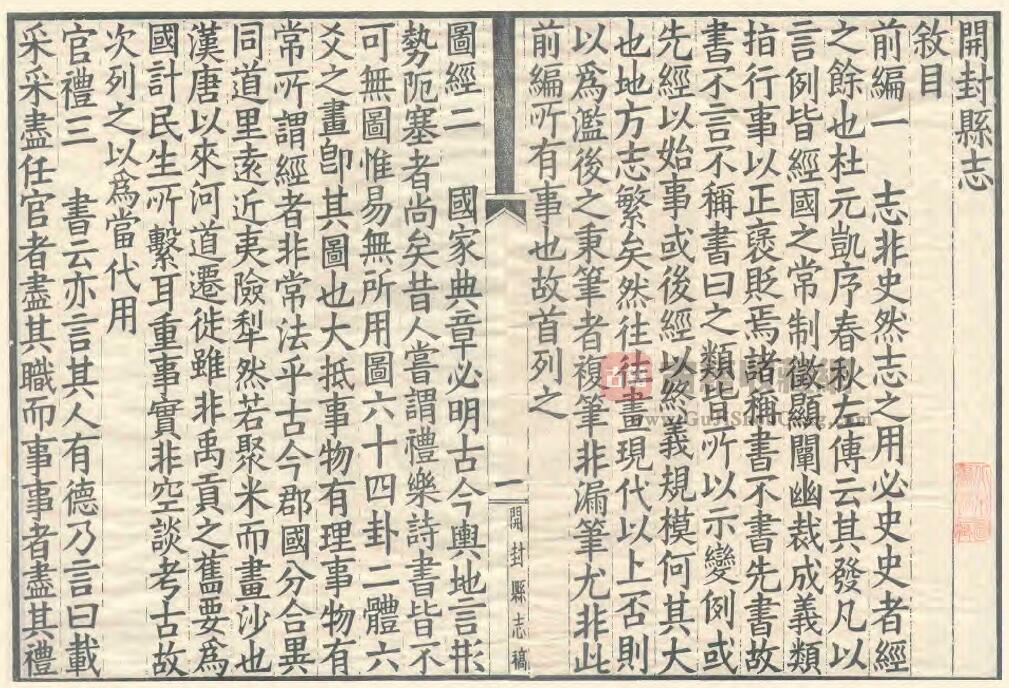 開封縣志
敘目
前編一　志非史然志之用必史史者經
之餘也杜元凱序春秋左傳云其發凡以
言例皆經國之常制徵顯闡幽裁成義類
指行事以正褒貶焉諸稱書不書先書故
書不言不稱書曰之類皆所以示變例或
先經以始事或後經以終義規模何其大
也地方志繁矣然往往畫現代以上否則
以爲濫後之秉筆者複筆非漏筆尤非此
前編所有事也故首列之
一
開封縣志稿
圖經二　國家典章必明古今輿地言形
勢阨塞者尚矣昔人嘗謂禮樂詩書皆不
可無圖惟易無所用圖六十四卦二體六
爻之畫卽其圖也大抵事物有理事物有
常所謂經者非常法乎古今郡國分合異
同道里遠近夷險犁然若聚米而畫沙也
漢唐以來河道遷徙雖非禹貢之舊要爲
國計民生所繫耳重事實非空談考古故
次列之以爲當代用
官禮三　書云亦言其人有德乃言曰載
采采盡任官者盡其職而事事者盡其禮
www.GuJiShuCang.com